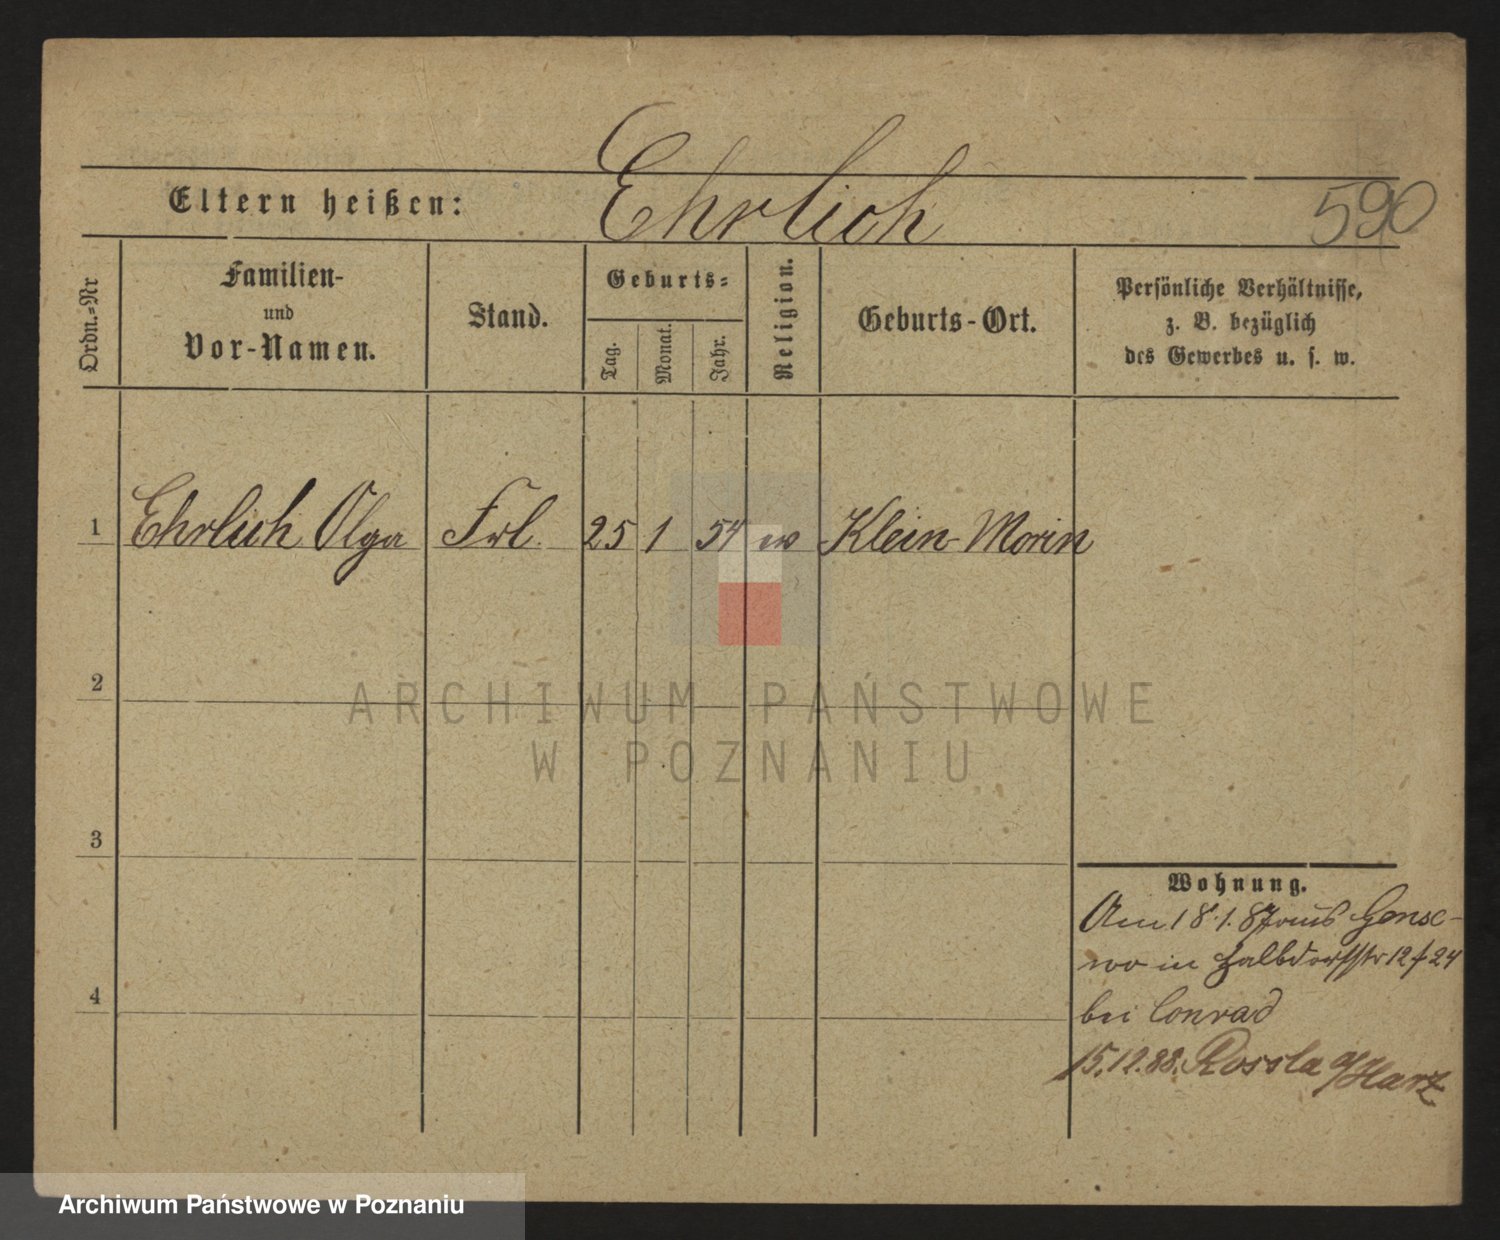 Eltern heißen: Ehrlich 590
Ordn.-Nr
Familien-
und
Vor-Namen.
Stand.
Geburts-
Tag.
Monat.
Jahr.
Religion.
Geburts-Ort.
Persönliche Verhältnisse,
z. B. bezüglich
des Gewerbes u. s. w.
1 Ehrlich Olga Frl. 25 1 54 ev Klein-Morin
2
ARCHIWUM PAŃSTWOWE
W POZNANIU
3
4
Wohnung.
Am 18.1.87 aus Gonsc-
wo in Halbdorfstr 12 f 24
bei Conrad
15.12.88. Rossla a/Harz
Archiwum Państwowe w Poznaniu